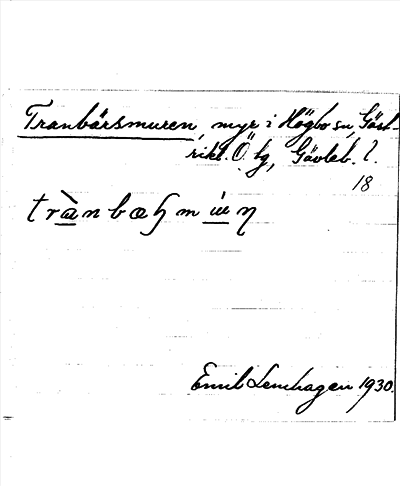 Tranbärsmuren, myr i Högbo sn, Gäst-
rikl. Ö. tg, Gävleb. l.
18
trànbæꞕmúɯŋ
Emil Lenhagen 1930.